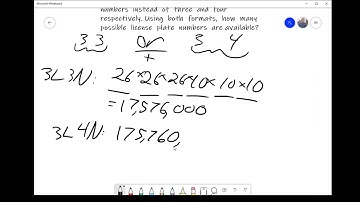 Microsoft Whiteboard
numbers instead of three and four
respectively. Using both formats, how many
possible license plate numbers are available?
3 3 or 3 4
+
3L3N: 26*26*26*10*10*10
=17,576,000
3L4N: 175,760,